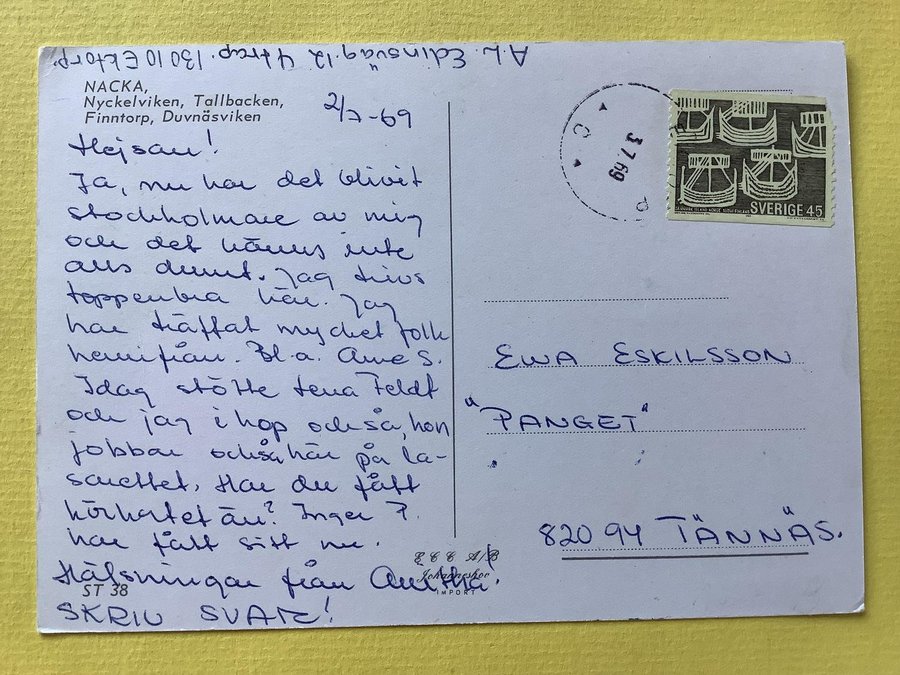 A.L. Edinsväg 12 4 trap. 130 10 Ektorp.
NACKA,
Nyckelviken, Tallbacken,
Finntorp, Duvnäsviken
2/7-69
Hejsan!
Ja, nu har det blivit
stockholmare av mig
och det känns inte
alls dumt. Jag trivs
toppenbra här. Jag
har träffat mycket folk
hemifrån. Bl.a. Arne S.
Idag stötte Lena Feldt
och jag i hop också, hon
jobbar också här på la-
sarettet. Har du fått
körkortet än? Inger P.
har fått sitt nu.
Hälsningar från Anitha.
SKRIV SVAR!
ST 38
ECC A/B
Johanneshov
IMPORT
3.7.69
SVERIGE 45
EWA ESKILSSON
"PANGET"
820 94 TÄNNÄS.